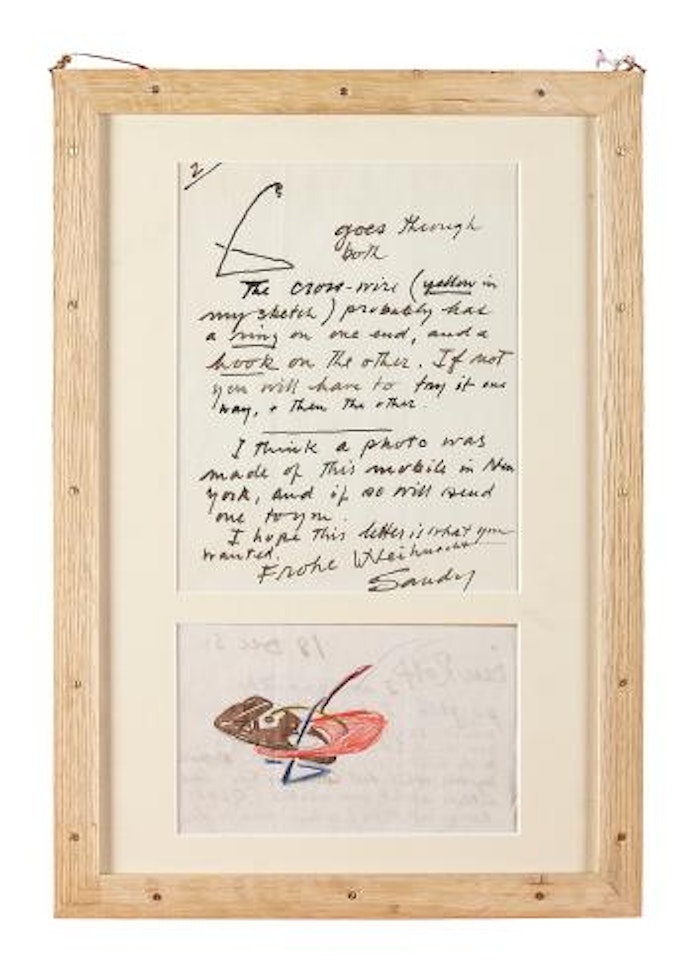 2
goes through
both
The cross-wire (yellow in
my sketch) probably has
a ring on one end, and a
hook on the other. If not
you will have to try it one
way, + then the other.
I think a photo was
made of this mobile in New
York, and if so will send
one to you.
I hope this letter is what you
wanted.
Frohe Weihnacht
Sandy
18 Dec 5